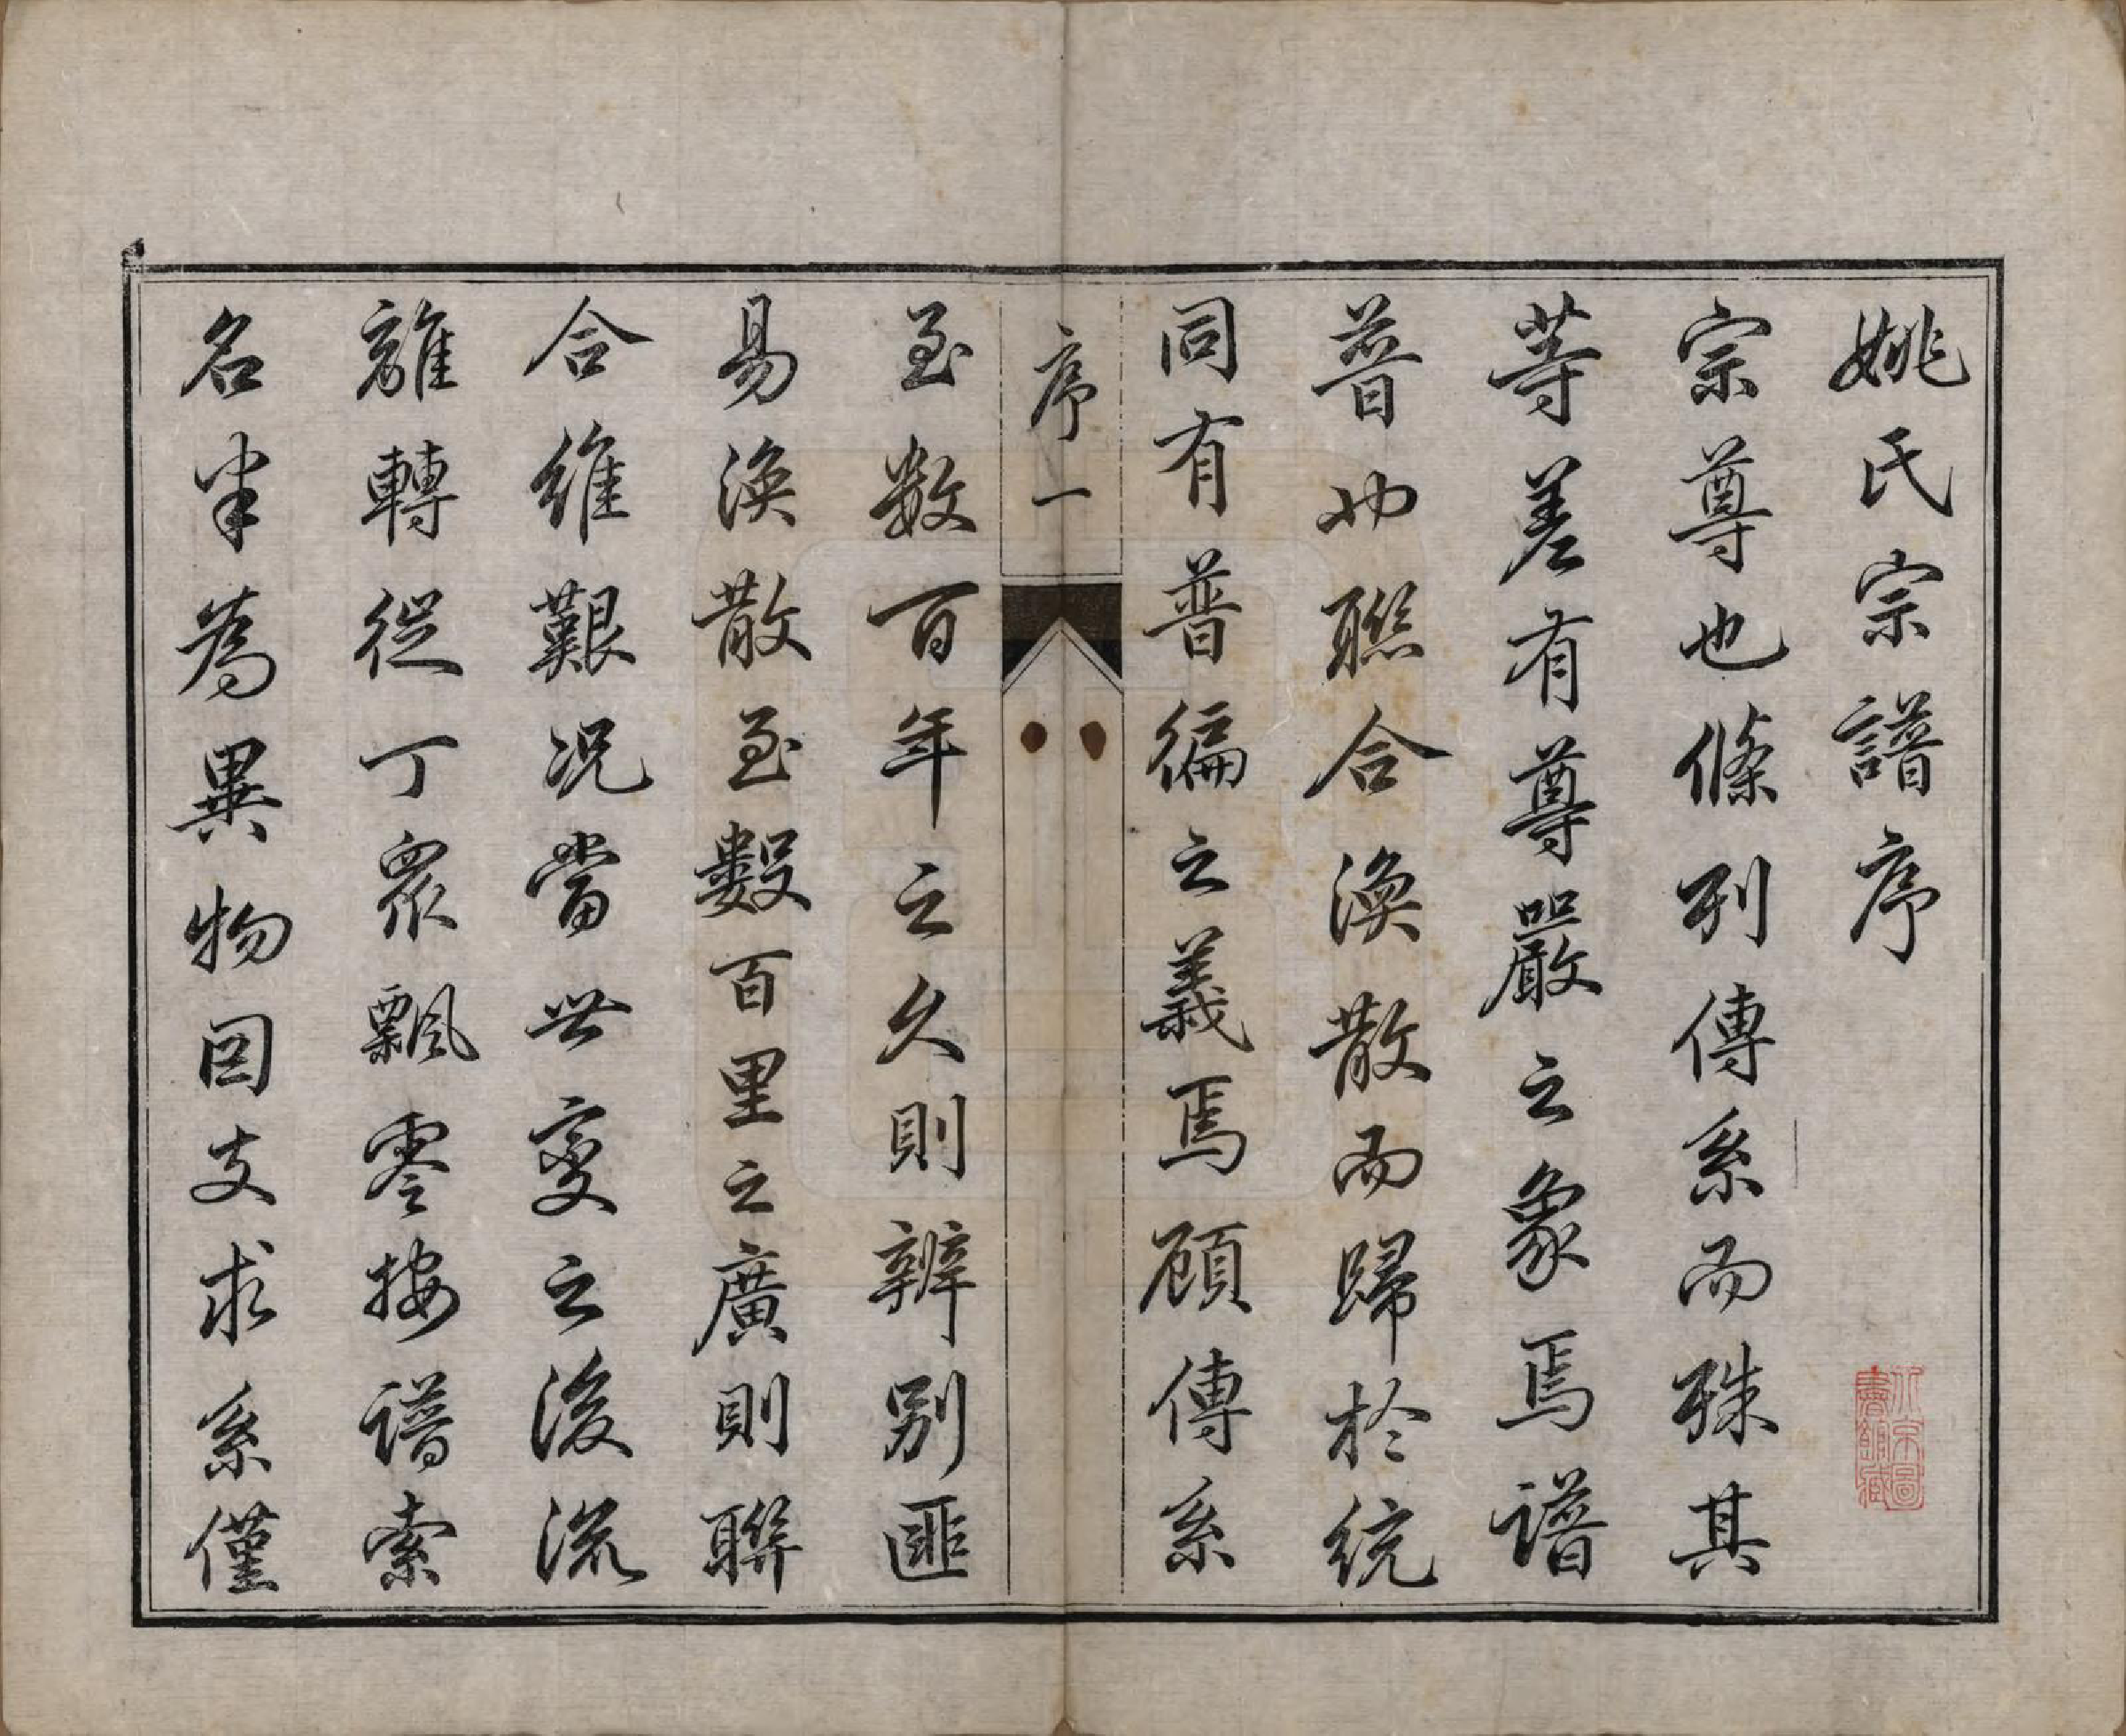 姚氏宗譜序
宗尊也條列傳系而殊其
等差有尊嚴之象焉譜
普也聯合渙散而歸於統
同有普徧之義焉顧傳系
序一
至数百年之久則辨別匪
易渙散至數百里之廣則聯
合維艱况當世變之後流
離轉徙丁眾飄零按譜索
名半為異物因支求系僅